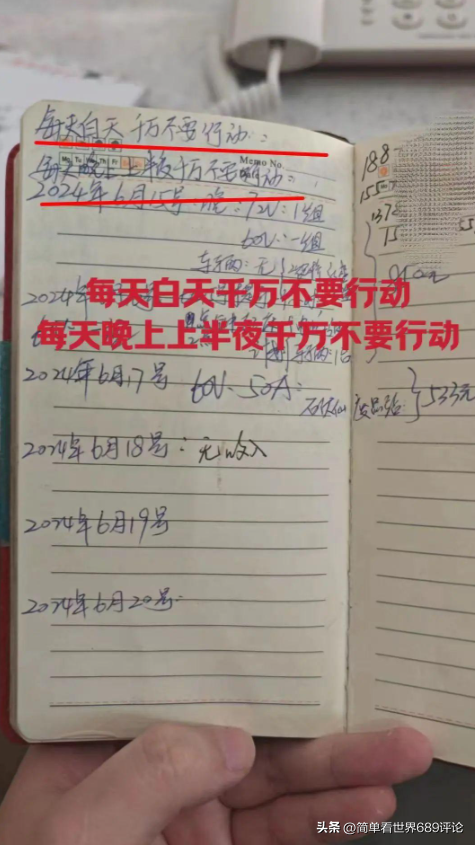 每天白天千万不要行动:
Memo No.
每天晚上上半夜千万不要行动:
2024年6月15号 72V:1组
60V:一组
车辆:无
每天白天千万不要行动
每天晚上上半夜千万不要行动
2024年6月17号 60V 50A:
533元
2024年6月18号:无收入
2024年6月19号
2024年6月20号:
188
155
1378
15
头条 @简单看世界689评论